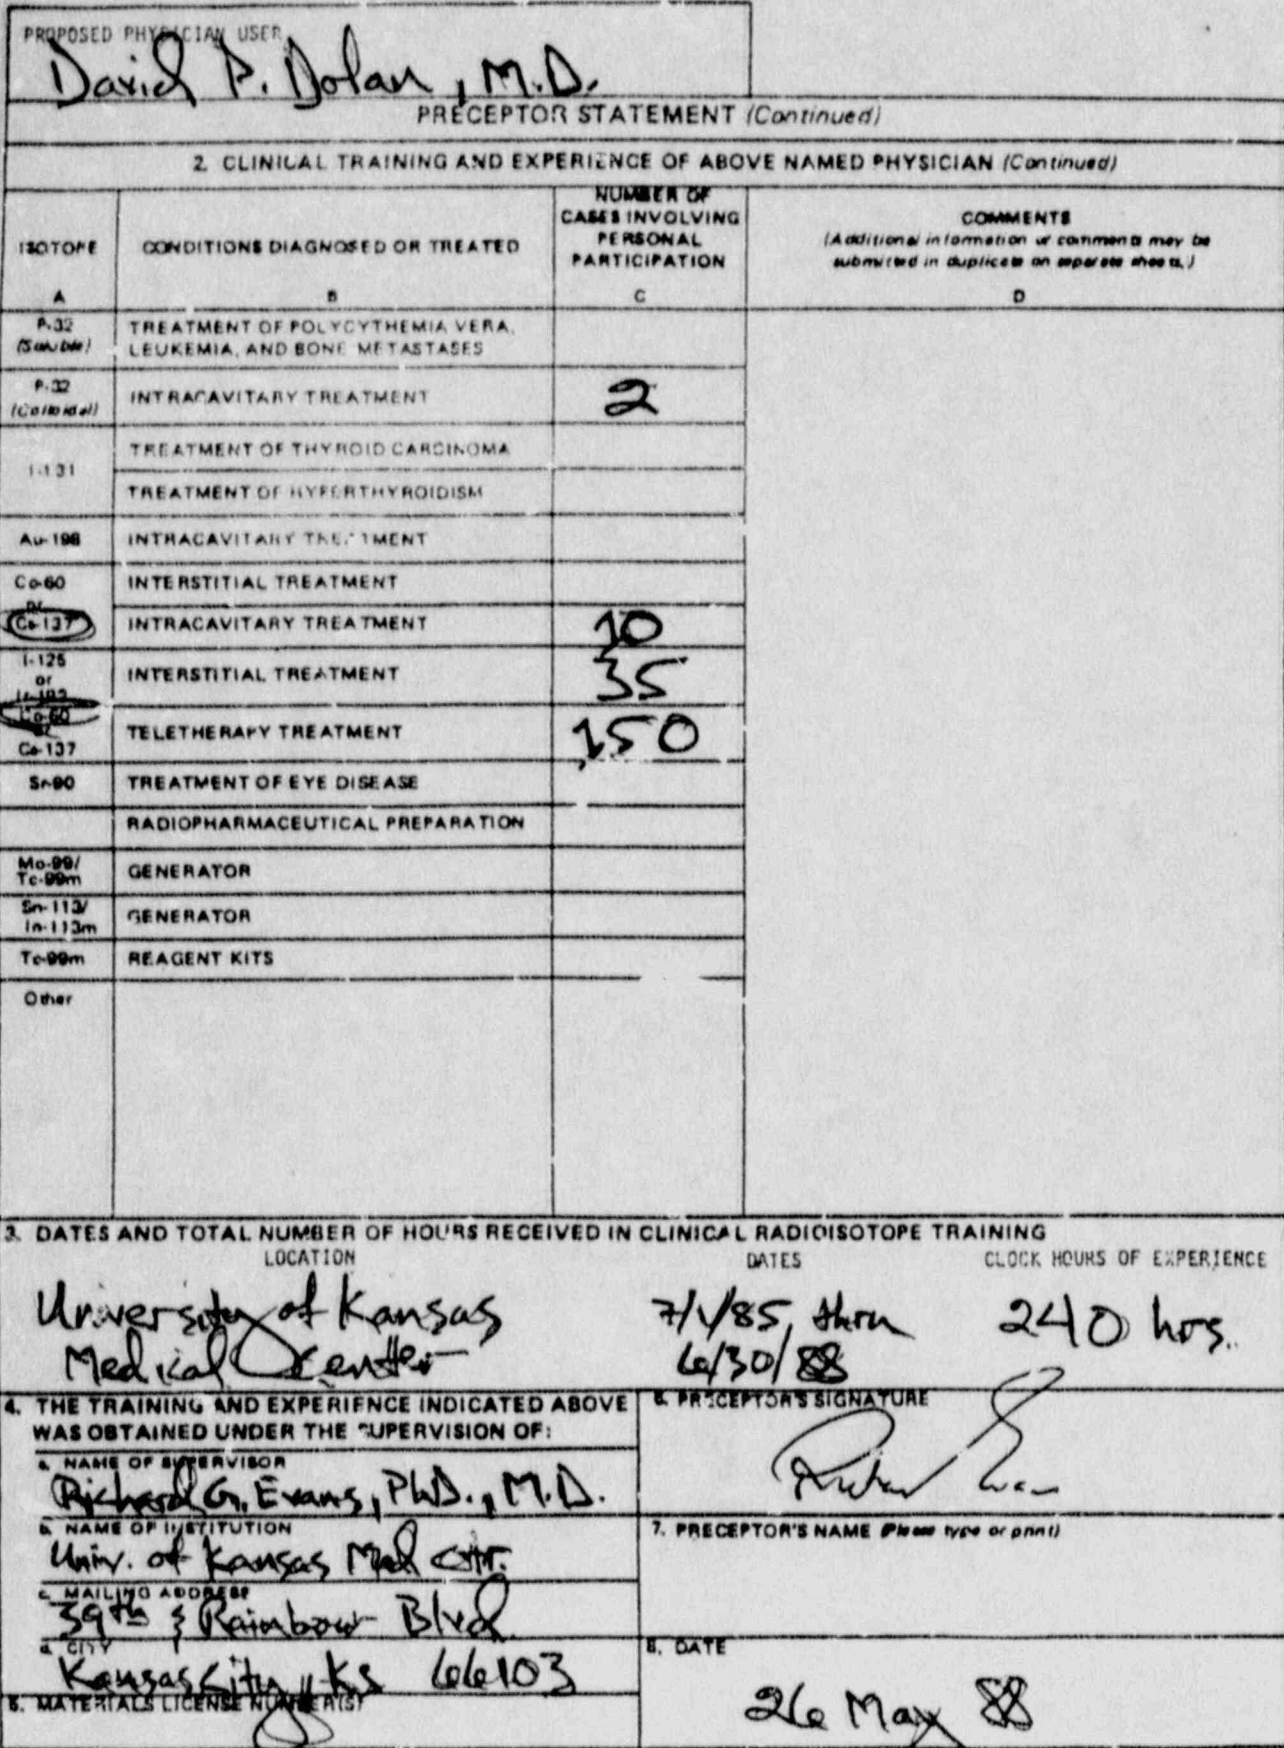 PROPOSED PHYSICIAN USER
David P. Dolan, M.D.
PRECEPTOR STATEMENT (Continued)
2. CLINICAL TRAINING AND EXPERIENCE OF ABOVE NAMED PHYSICIAN (Continued)
ISOTOPE
CONDITIONS DIAGNOSED OR TREATED
NUMBER OF
CASES INVOLVING
PERSONAL
PARTICIPATION
COMMENTS
(Additional information or comments may be
submitted in duplicate on separate sheets.)
A
B
C
D
P-32
(Soluble)
TREATMENT OF POLYCYTHEMIA VERA,
LEUKEMIA, AND BONE METASTASES
P-32
(Colloidal)
INTRACAVITARY TREATMENT
2
I-131
TREATMENT OF THYROID CARCINOMA
TREATMENT OF HYPERTHYROIDISM
Au-198
INTRACAVITARY TREATMENT
Co-60
or
Cs-137
INTERSTITIAL TREATMENT
INTRACAVITARY TREATMENT
10
I-125
or
Ir-192
INTERSTITIAL TREATMENT
35
Co-60
or
Cs-137
TELETHERAPY TREATMENT
150
Sr-90
TREATMENT OF EYE DISEASE
RADIOPHARMACEUTICAL PREPARATION
Mo-99/
Tc-99m
GENERATOR
Sn-113/
In-113m
GENERATOR
Tc-99m
REAGENT KITS
Other
3. DATES AND TOTAL NUMBER OF HOURS RECEIVED IN CLINICAL RADIOISOTOPE TRAINING
LOCATION DATES CLOCK HOURS OF EXPERIENCE
University of Kansas 7/1/85 thru 240 hrs.
Medical Center 6/30/88
4. THE TRAINING AND EXPERIENCE INDICATED ABOVE
WAS OBTAINED UNDER THE SUPERVISION OF:
a. NAME OF SUPERVISOR
Richard G. Evans, PhD., M.D.
b. NAME OF INSTITUTION
Univ. of Kansas Med Ctr.
c. MAILING ADDRESS
39th & Rainbow Blvd
d. CITY
Kansas City, Ks 66103
5. MATERIALS LICENSE NUMBER(S)
6. PRECEPTOR'S SIGNATURE
7. PRECEPTOR'S NAME (Please type or print)
8. DATE
26 May 88